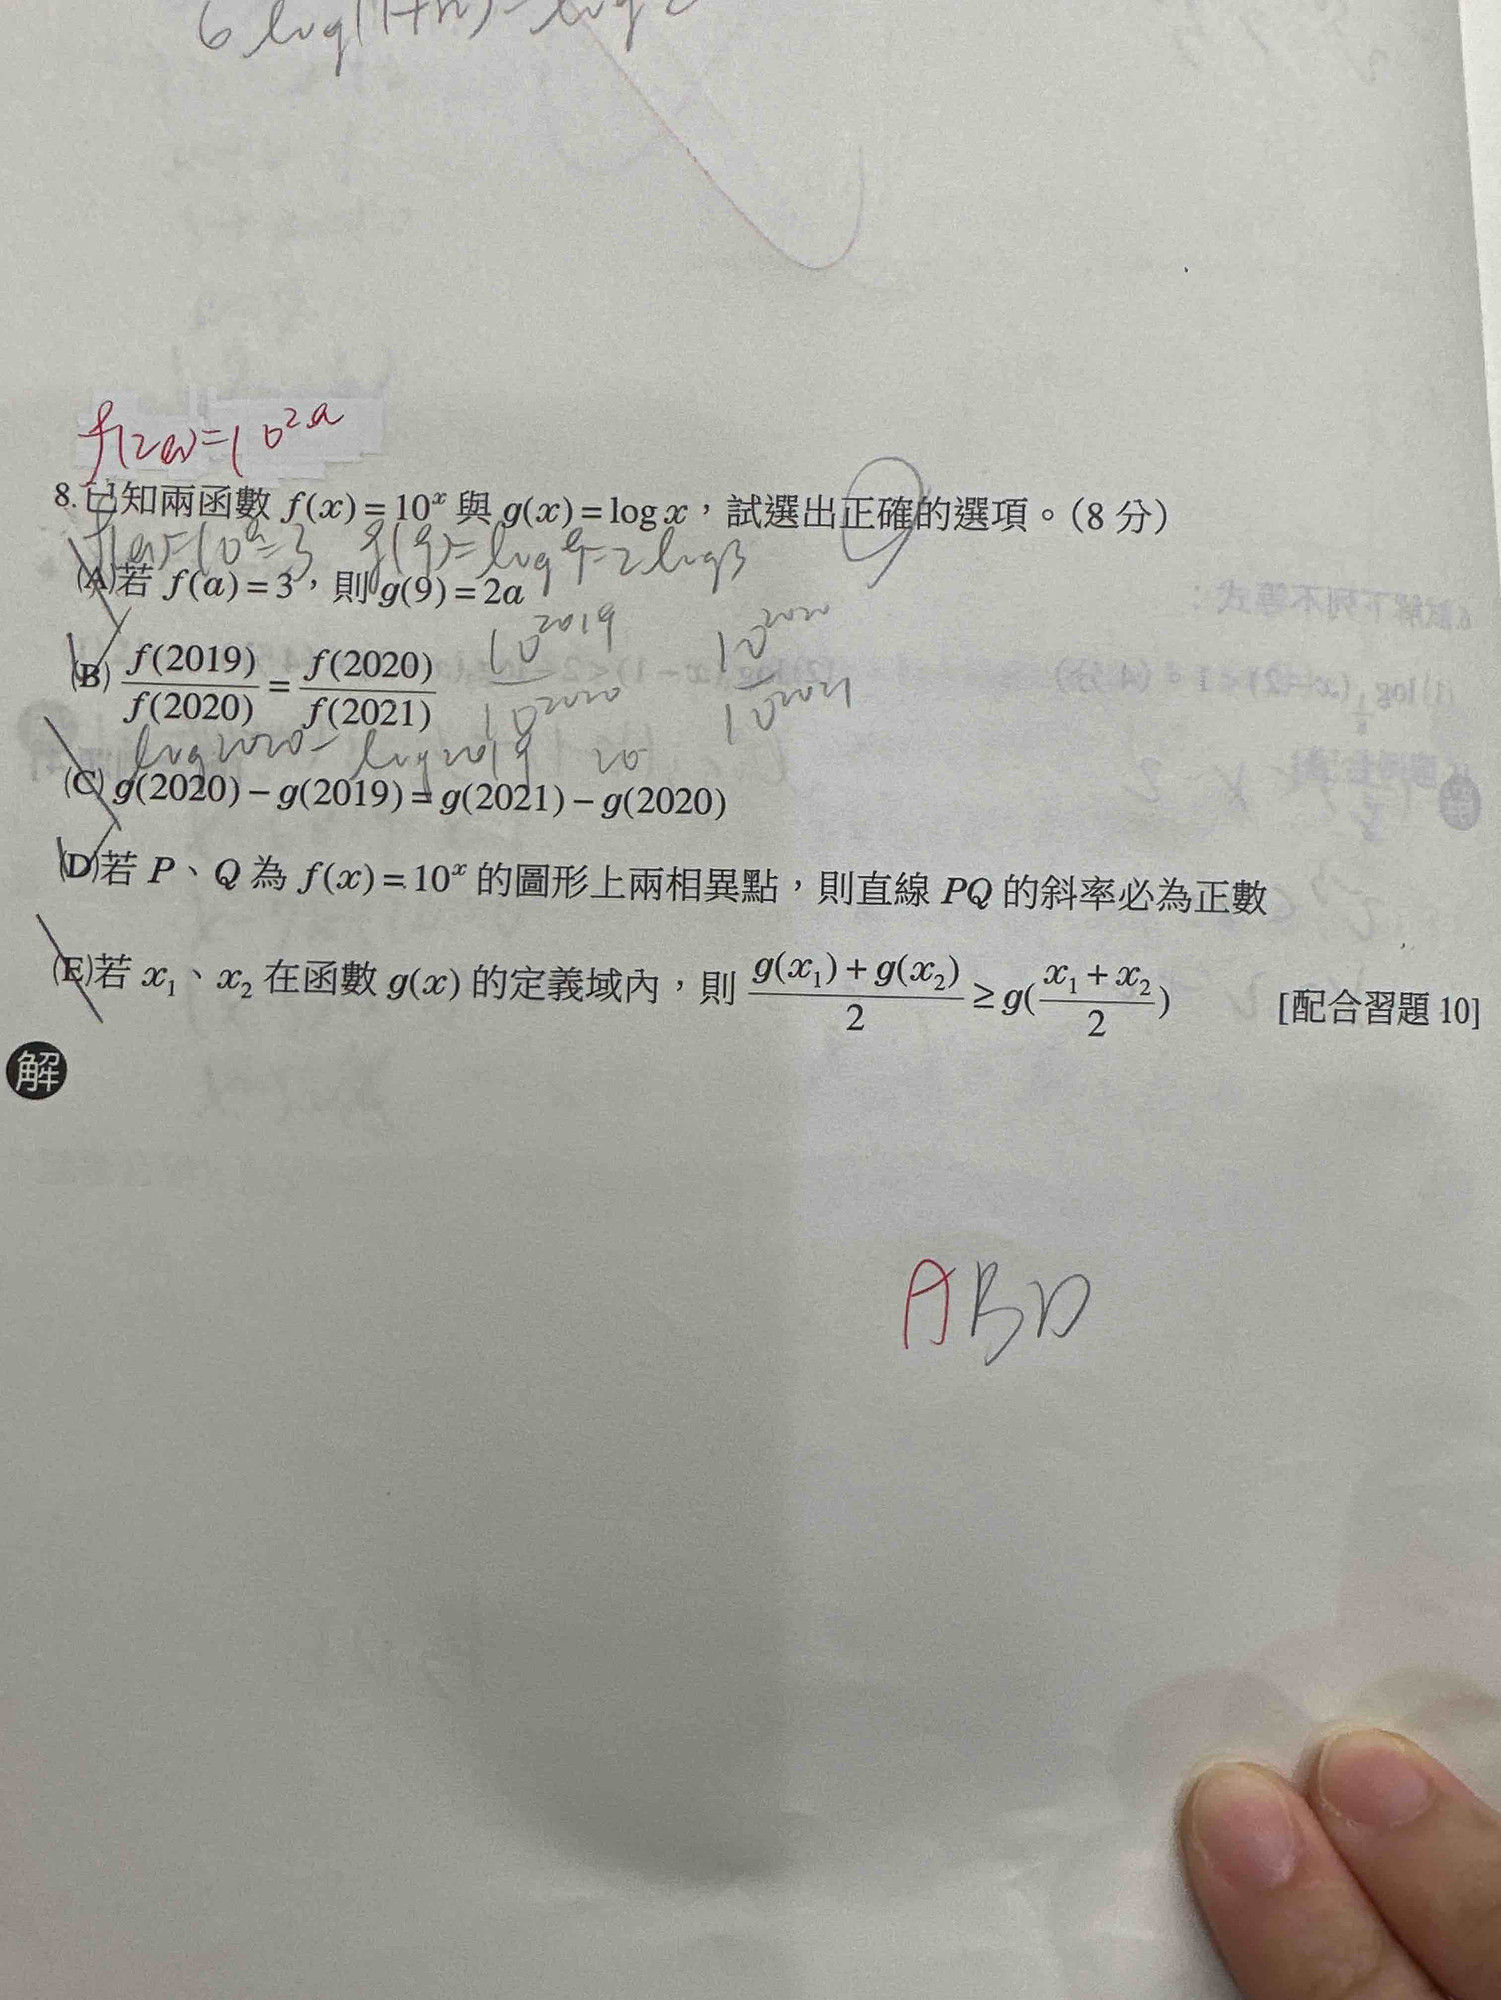 6 log(1+r)
f(2a)=10^{2a}
8.已知兩函數 f(x)=10^x 與 g(x)=log x，試選出正確的選項。(8 分)
f(a)=10^a=3 g(9)=log 9=2log3
(A)若 f(a)=3，則 g(9)=2a
(B) f(2019)/f(2020) = f(2020)/f(2021) 10^{2019}/10^{2020} 10^{2020}/10^{2021}
log2020- log2019 20
(C) g(2020)-g(2019)=g(2021)-g(2020)
(D)若 P、Q 為 f(x)=10^x 的圖形上兩相異點，則直線 PQ 的斜率必為正數
(E)若 x₁、x₂ 在函數 g(x) 的定義域內，則 (g(x₁)+g(x₂))/2 ≥ g((x₁+x₂)/2) [配合習題 10]
解
ABD